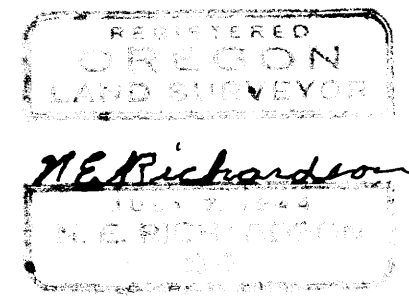 REGISTERED
OREGON
LAND SURVEYOR
N E Richardson
JULY 7, 1944
N. E. RICHARDSON